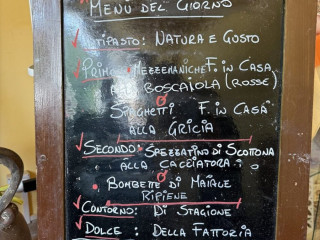 Menù del Giorno
Antipasto: Natura e Gusto
Primo: Mezzemaniche F. in Casa
alla Boscaiola (Rosse)
o
Spaghetti F. in Casa
alla Gricia
Secondo: Spezzatino di Scottona
alla Cacciatora
o
Bombette di Maiale
Ripiene
Contorno: Di Stagione
Dolce: Della Fattoria